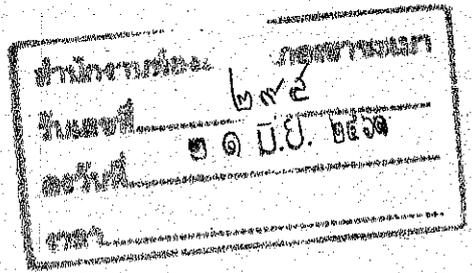 สำนักงาน
รับเลขที่ ๒๙๕
ลงวันที่ ๒๑ มิ.ย. ๒๕๖๑
เวลา